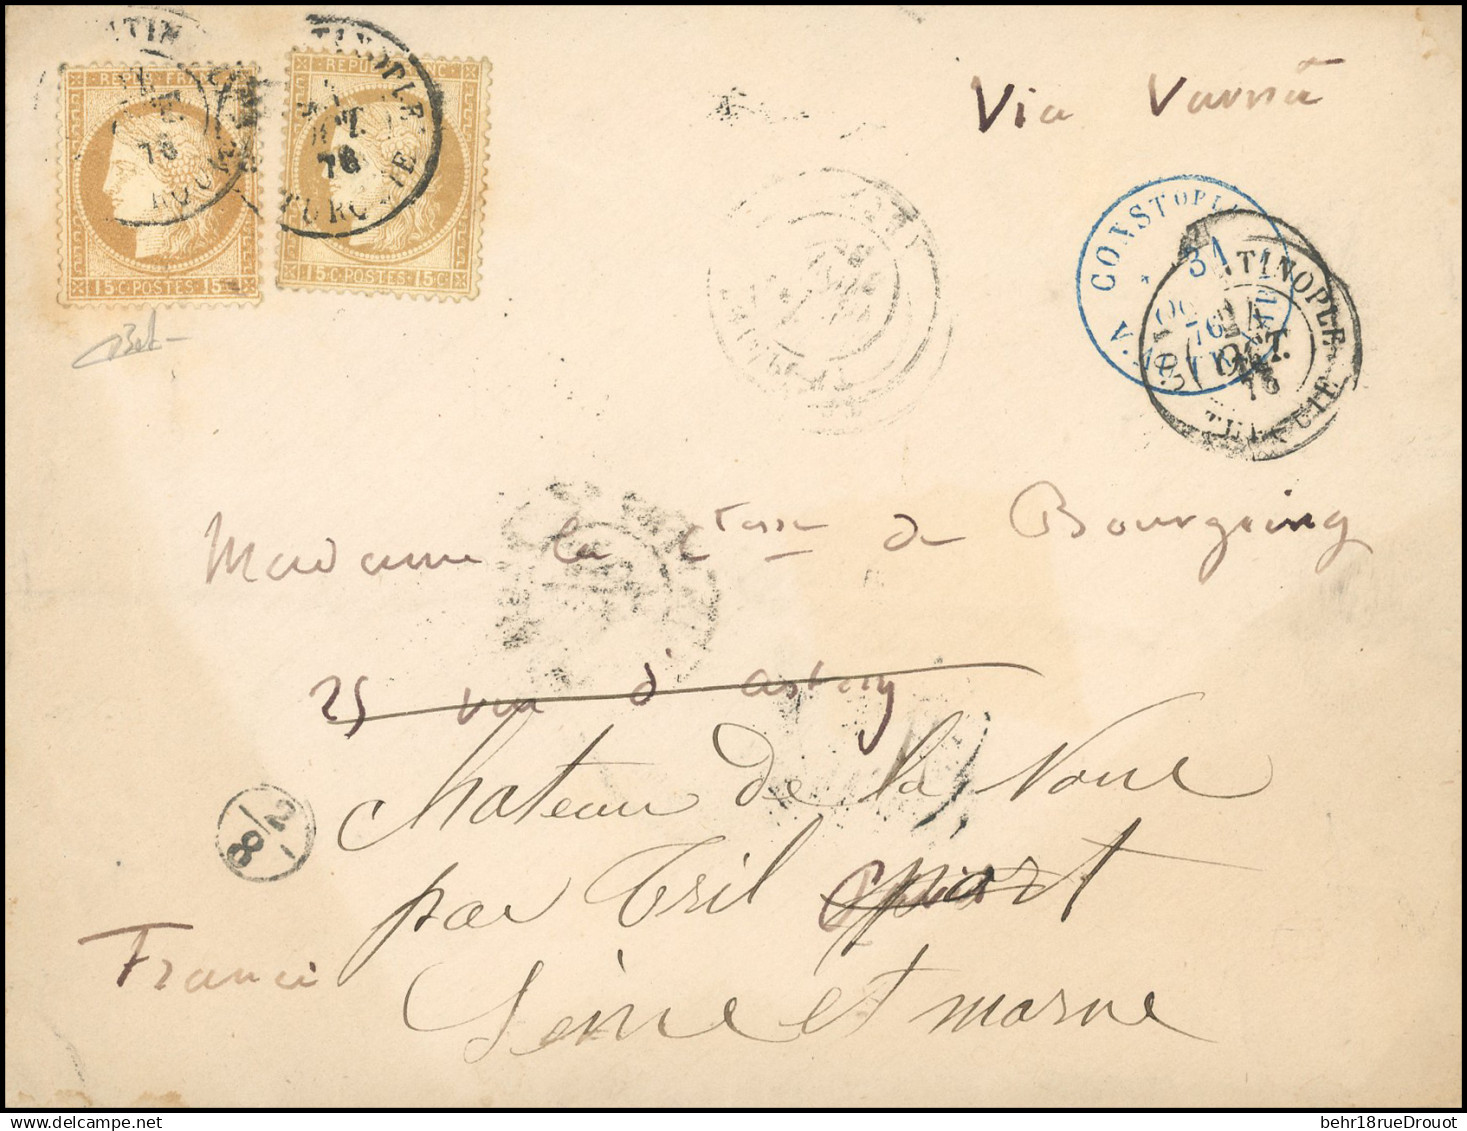 Via Varna
REPUB. FRANC.
15 C. POSTES 15 C.
REPUB. FRANC.
15 C. POSTES 15 C.
TINOPLE
OCT.
76
TURQUIE
CONSTOPLE
31
76
TINOPLE
OCT.
76
Madame la Ctesse de Bourgoing
25 rue d'astorg
Chateau de la Noue
par Tril port
Paris
2
8
France
Seine et marne
behr18rueDrouot